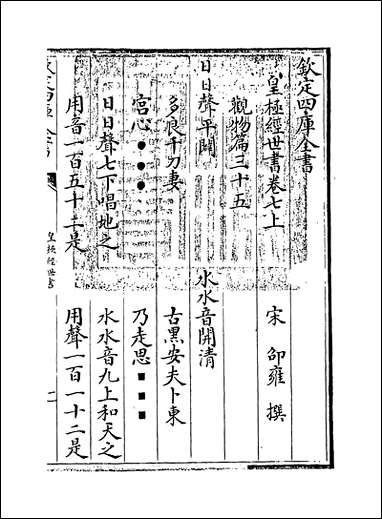 欽定四庫全書
皇極經世書卷七上 宋 邵雍 撰
觀物篇三十五
日日聲平闢 水水音開清
多良千刀妻 古黑安夫卜東
宮心●●● 乃走思■■■
日日聲七下唱地之 水水音九上和天之
用音一百五十二是 用聲一百一十二是
皇極經世書